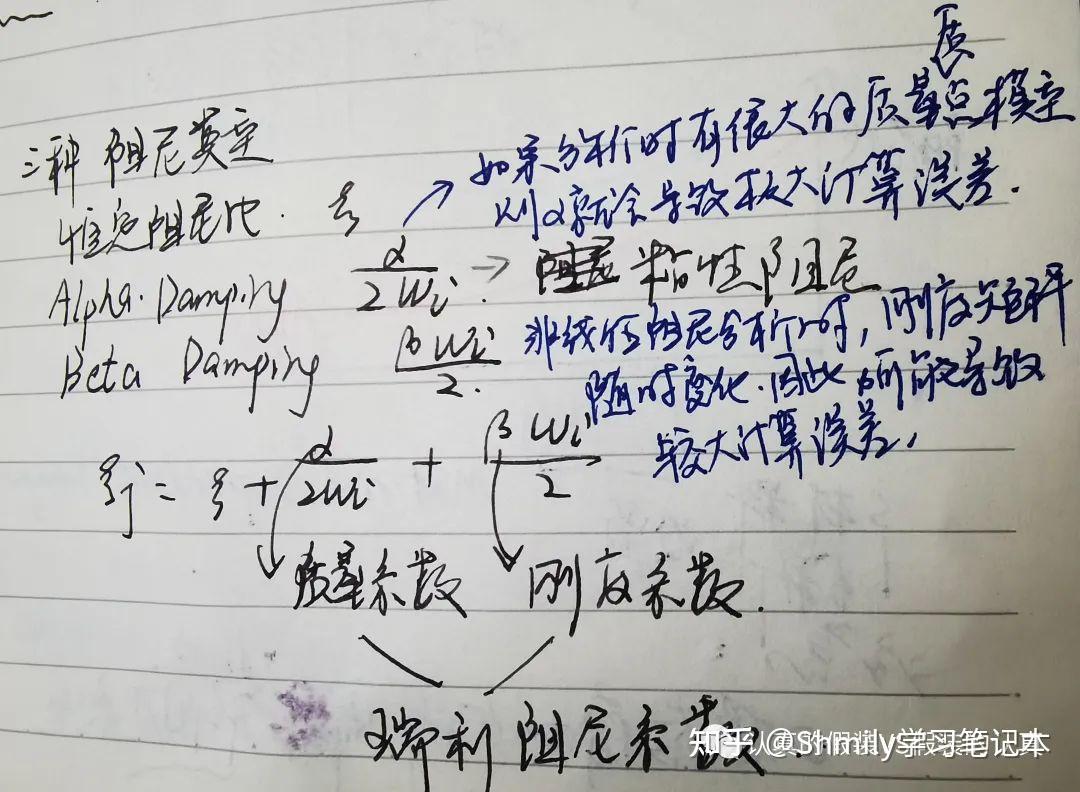 三种阻尼类型
恒定阻尼比. ξ
Alpha Damping α/2Wi → 粘性阻尼
Beta Damping βWi/2.
如果分析时有很大的质量点模型
则α就会导致较大计算误差.
非线性阻尼分析时, 刚度矩阵
随时变化.因此 所能导致
较大计算误差,
ξj = ξ + α/2Wi + βWi/2
质量系数 刚度系数.
瑞利阻尼系数.
质
知乎 @Shmily学习笔记本